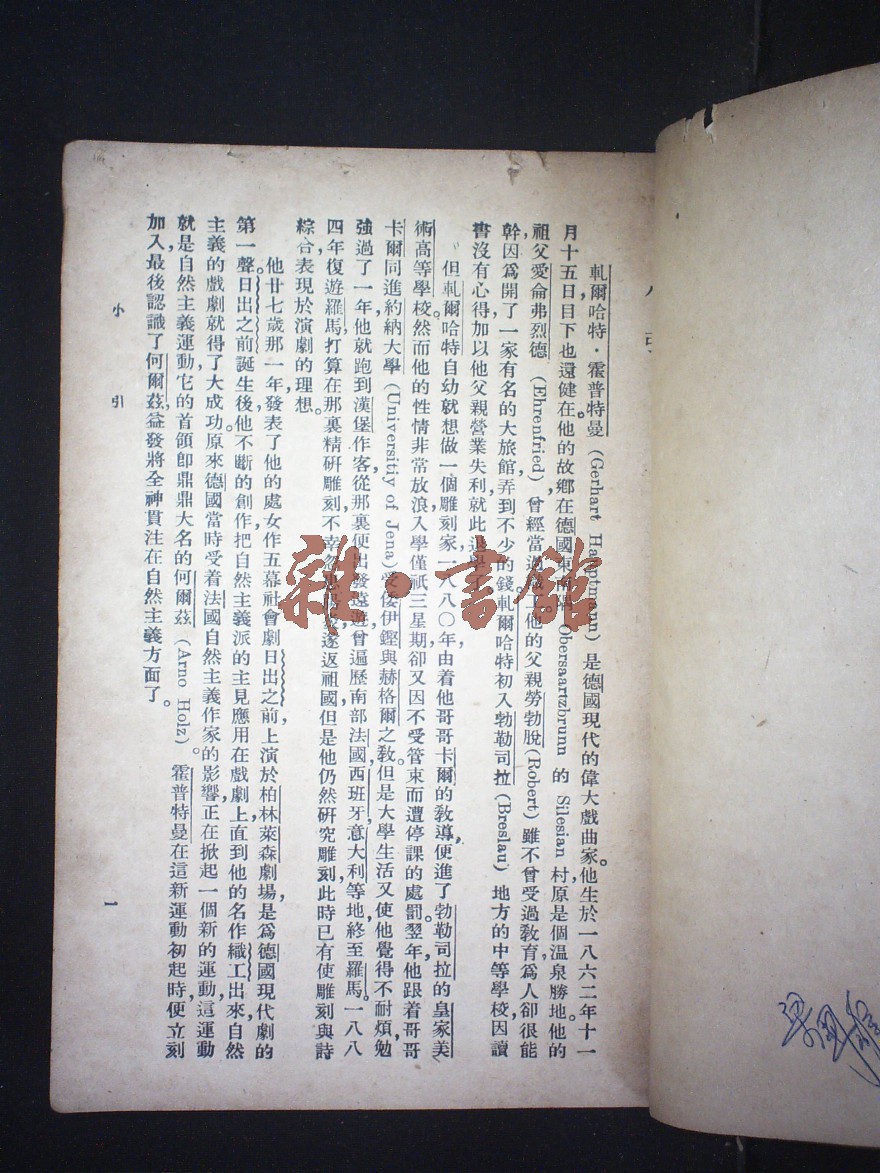 小引
軋爾哈特・霍普特曼 (Gerhart Hauptmann) 是德國現代的偉大戲曲家。他生於一八六二年十一
月十五日，目下也還健在。他的故鄉在德國東南 Obersaartzbrunn 的 Silesian 村，原是個溫泉勝地。他的
祖父愛侖弗烈德 (Ehrenfried) 曾經當過織工。他的父親勞勃脫 (Robert) 雖不曾受過教育，爲人卻很能
幹，因爲開了一家有名的大旅館，弄到不少的錢。軋爾哈特初入勃勒司拉 (Breslau) 地方的中等學校，因讀
書沒有心得，加以他父親營業失利，就此退學了。
但軋爾哈特自幼就想做一個雕刻家，一八八〇年，由着他哥哥卡爾的教導，便進了勃勒司拉的皇家美
術高等學校。然而他的性情非常放浪，入學僅祇三星期，卻又因不受管束而遭停課的處罰。翌年，他跟着哥哥
卡爾同進約納大學 (Universitiy of Jena) 受倭伊鏗與赫格爾之教。但是大學生活又使他覺得不耐煩，勉
強過了一年，他就跑到漢堡作客，從那裏便出發遠遊，曾遍歷南部法國，西班牙，意大利等地，終至羅馬。一八八
四年復遊羅馬，打算在那裏精研雕刻，不幸忽患，遂返祖國。但是他仍然研究雕刻，此時已有使雕刻與詩
綜合表現於演劇的理想。
他廿七歲那一年，發表了他的處女作五幕社會劇日出之前，上演於柏林萊森劇場，是爲德國現代劇的
第一聲。日出之前誕生後，他不斷的創作，把自然主義派的主見應用在戲劇上，直到他的名作織工出來，自然
主義的戲劇就得了大成功。原來德國當時受着法國自然主義作家的影響，正在掀起一個新的運動，這運動
就是自然主義運動，它的首領卽鼎鼎大名的何爾茲 (Arno Holz)。霍普特曼在這新運動初起時，便立刻
加入，最後認識了何爾茲，益發將全神貫注在自然主義方面了。
小引
1
雜・書館